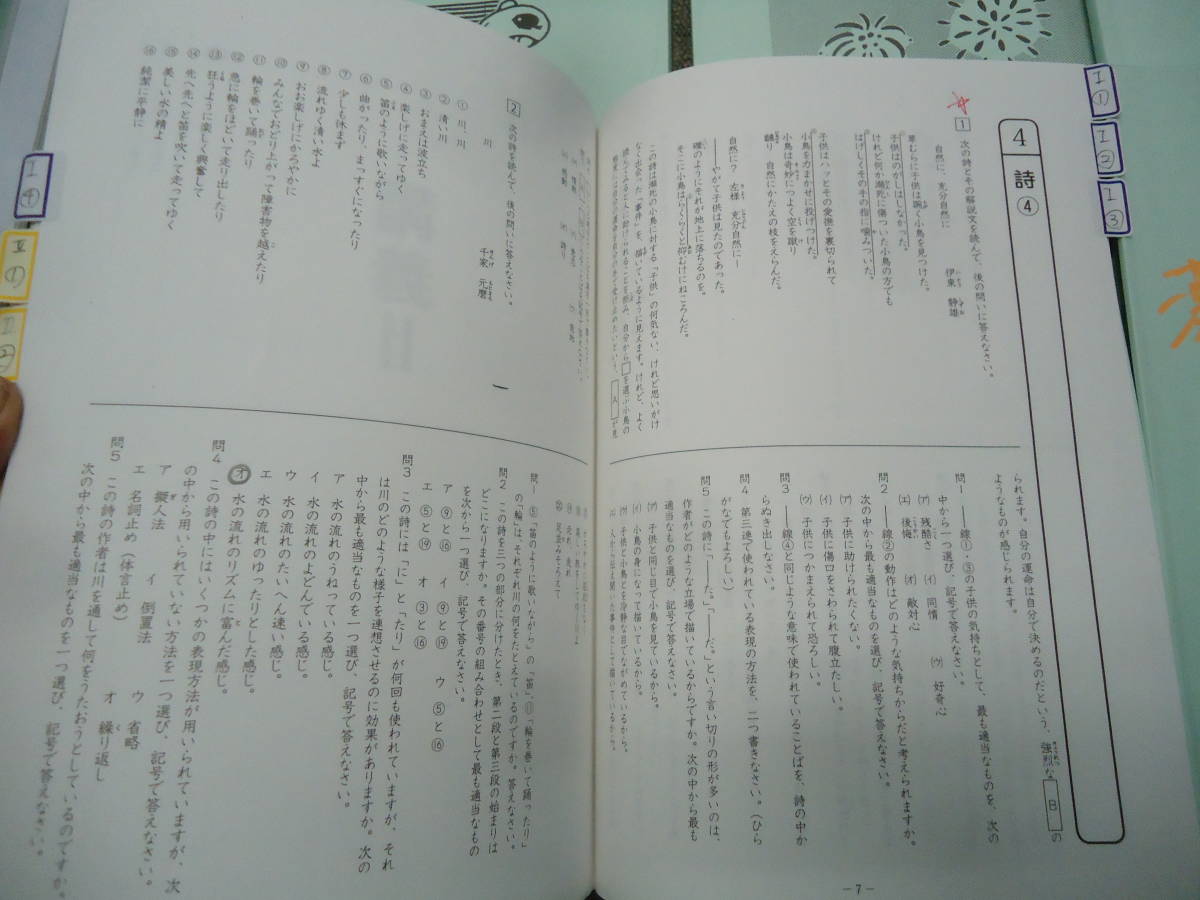 4 詩 ④
1 次の詩とその解説文を読んで、後の問いに答えなさい。
自然に、充分自然に
伊東 静雄
草むらに子供は踠く小鳥を見つけた。
子供はのがしはしなかった。
けれど何か瀕死に傷ついた小鳥の方でも
はげしくその手の指に噛みついた。
子供はハッとその愛撫を裏切られて
小鳥を力まかせに投げつけた。
小鳥は奇妙につよく空を蹴り
翻り 自然にかたえの枝をえらんだ。
自然に? 左様 充分自然に!
——やがて子供は見たのであった。
礫のようにそれが地上に落ちるのを。
そこに小鳥はらくらくと仰むけにねころんだ。
この詩は瀕死の小鳥に対する「子供」の何気ない、けれど思いがけ
なく出会った「事件」を、描いているように見えます。けれど、よく
られます。自分の運命は自分で決めるのだという、強烈な B の
ようなものが感じられます。
問1 ——線①・③の子供の気持ちとして、最も適当なものを、次の
中から一つ選び、記号で答えなさい。
(ア) 残酷さ (イ) 同情 (ウ) 好奇心
(エ) 後悔 (オ) 敵対心
問2 ——線②の動作はどのような気持ちからだと考えられますか。
次の中から最も適当なものを選び、記号で答えなさい。
(ア) 子供に助けられたくない。
(イ) 子供に傷口をさわられて腹立たしい。
(ウ) 子供につかまえられて恐ろしい。
問3 ——線④と同じような意味で使われていることばを、詩の中か
らぬき出しなさい。
問4 第三連で使われている表現の方法を、二つ書きなさい。(ひら
がなでもよろしい)
問5 この詩に「——た。」「——だ。」という言い切りの形が多いのは、
作者がどのような立場で描いているからですか。次の中から最も
適当なものを選び、記号で答えなさい。
(ア) 子供と同じ目で小鳥を見ているから。
(イ) 小鳥の身になって描いているから。
(ウ) 子供と小鳥とを冷静な目でながめているから。
-7-
2 次の詩を読んで、後の問いに答えなさい。
川
千家 元麿
① 川、川
② 清い川
③ おまえは波立ち
④ 楽しげに走ってゆく
⑤ 笛のように歌いながら
⑥ 曲がったり、まっすぐになったり
⑦ 少しも休まず
⑧ 流れゆく清い水よ
⑨ おお楽しげにかろやかに
⑩ みんなでおどり上がって障害物を越えたり
⑪ 輪を巻いて踊ったり
⑫ 急に輪をほどいて走り出したり
⑬ 狂うように楽しく興奮して
⑭ 先へ先へと笛を吹いて走ってゆく
⑮ 美しい水の精よ
⑯ 純潔に平静に
⑳ 足並みそろえて
問1 ⑤「笛のように歌いながら」の「笛」、⑪「輪を巻いて踊ったり」
の「輪」は、それぞれ川の何をたとえているのですか。答えなさい。
問2 この詩を三つの部分に分けたとき、第二段と第三段の始まりは
どこになりますか。その番号の組み合わせとして最も適当なもの
を次から一つ選び、記号で答えなさい。
ア ⑨と⑯ イ ⑨と⑲ ウ ⑤と⑯
エ ⑤と⑲ オ ③と⑯
問3 この詩には「に」と「たり」が何回も使われていますが、それ
は川のどのような様子を連想させるのに効果がありますか。次の
中から最も適当なものを一つ選び、記号で答えなさい。
ア 水の流れのうねっている感じ。
イ 水の流れのよどんでいる感じ。
ウ 水の流れのたいへん速い感じ。
エ 水の流れのゆったりとした感じ。
オ 水の流れのリズムに富んだ感じ。
問4 この詩の中にはいくつかの表現方法が用いられていますが、次
の中から用いられていない方法を一つ選び、記号で答えなさい。
ア 擬人法 イ 倒置法 ウ 省略
エ 名詞止め(体言止め) オ 繰り返し
問5 この詩の作者は川を通して何をうたおうとしているのですか。
次の中から最も適当なものを一つ選び、記号で答えなさい。
I ①
I ②
I ③
I ④
II ①
II ②